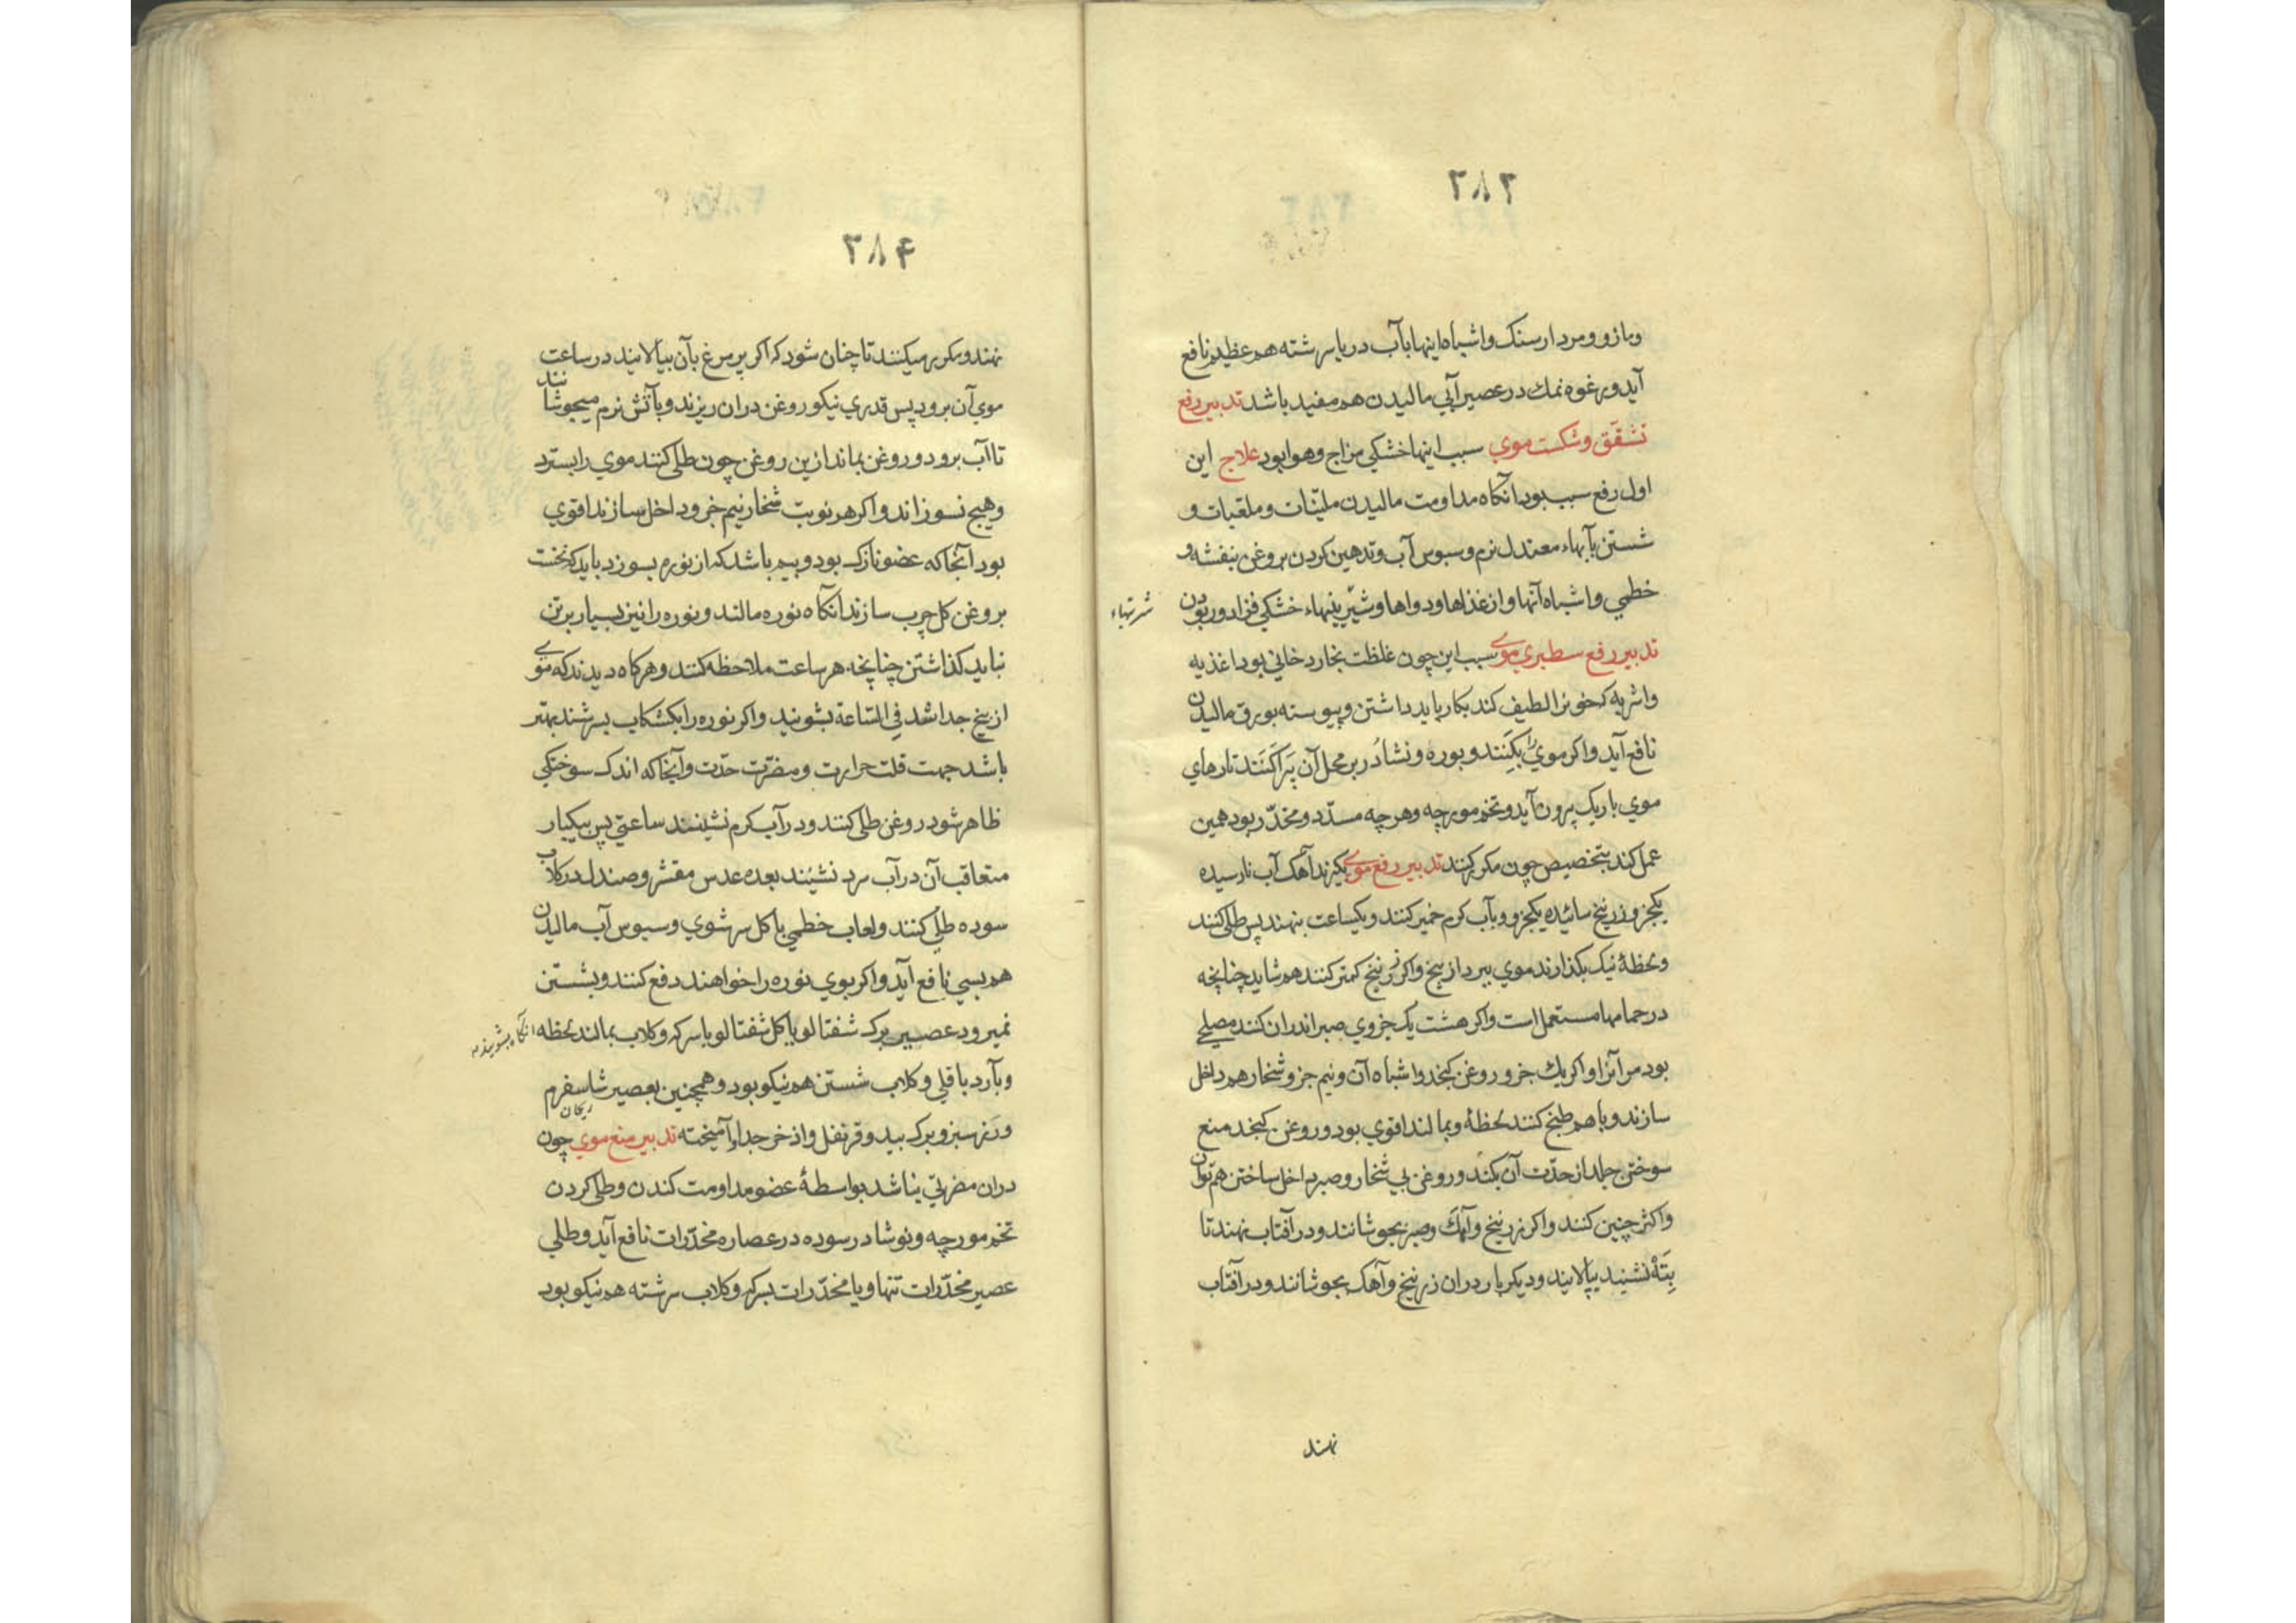 ۳۸۳
ومازو ومردارسنک واشباه اینها بآب دریا سرشته هم عظیم نافع
آید ورغوه نمك در عصیر آبی مالیدن هم مفید باشد تدبیر رفع
تشقّق وشکست موي سبب اینها خشکي مزاج وهوا بود علاج این
اول رفع سبب بود آنکاه مداومت مالیدن ملیّنات وملعّبات و
شستن بآبهاء معتدل نرم وسبوس آب وتدهین کردن بروغن بنفشه و
خطمي واشباه آنها واز غذاها ودواها وشیرینیهاء خشکي فزا دور بودن
شربتهاء
تدبیر رفع سطبري موی سبب این چون غلظت بخار دخاني بود اغذیه
واشربه که خون را لطیف کند بکار باید داشتن وپیوسته بورق مالیدن
نافع آید واکر موي را بکنند وبوره ونشادر بر محل آن پراکنند تارهاي
موي باریک برون آید وتخم مورچه وهرچه مسدّد ومخدّر بود همین
عمل کند بتخصیص چون مکرر کنند تدبیر رفع موی بکیرند آهک آب نارسیده
یکجزو زرنیخ سائیده یکجزو وبآب کرم خمیر کنند ویکساعت بنهند پس طلی کنند
ولحظهٔ نیک بکذارند موي ببرد از بیخ واکر زرنیخ کمتر کنند هم شاید چنانچه
در حمامها مستعمل است واکر هشت یک جزوي صبر اندران کنند مصلح
بود مر آنرا واکر یك جزو روغن کنجد واشباه آن ونیم جزو شخار هم داخل
سازند وباهم طبخ کنند لحظهٔ وبمالند اقوي بود وروغن کنجد منع
سوختن جلد از حدّت آن بکند وروغن بي شخار وصبر داخل ساختن هم توان
واکثر چنین کنند واکر زرنیخ وآهك وصبر بجوشانند ودر آفتاب نهند تا
بتَه نشیند بپالایند ودیکر بار دران زرنیخ وآهک بجوشانند ودر آفتاب
نهند
۳۸۴
نهند ومکرر میکنند تا چنان شود که اکر پر مرغ بآن بیالایند در ساعت
موي آن برود پس قدري نیکو روغن دران ریزند وبآتش نرم میجوشانند
تا آب برود وروغن بماند ازین روغن چون طلی کنند موي را بسترد
وهیچ نسوزاند واکر هر نوبت شخار نیم جزو داخل سازند اقوي
بود آنجا که عضو نازک بود وبیم باشد که از نوره بسوزد باید که نخست
بروغن کل چرب سازند آنکاه نوره مالند ونوره را نیز بسیار برتن
نباید کذاشتن چنانچه هر ساعت ملاحظه کنند وهرکاه دیدند که موی
از بیخ جدا شد في الساعة بشویند واکر نوره را بکشکاب بسرشند بهتر
باشد جهت قلت حرارت ومضرّت حدّت وآنجا که اندک سوختکي
ظاهر شود روغن طلی کنند ودر آب کرم نشینند ساعتي پس بیکبار
متعاقب آن در آب سرد نشینند بعده عدس مقشر وصندل درکلاب
سوده طلی کنند ولعاب خطمي با کل سرشوي وسبوس آب مالیدن
هم بسي نافع آید واکر بوي نوره را خواهند دفع کنند وبشستن
نمیرود عصیر برک شفتالو یا کل شفتالو با سرکه وکلاب بمالند لحظه آنکاه بشویند
وبآرد باقلي وکلاب شستن هم نیکو بود وهمچنین بعصیر شاسفرم
ریحان
ورز سبز وبرک بید وقرنفل واذخر جدا یا آمیخته تدبیر منع موي چون
دران مضرتي نباشد بواسطهٔ عضو مداومت کندن وطلی کردن
تخم مورچه ونوشادر سوده در عصاره مخدّرات نافع آید وطلي
عصیر مخدّرات تنها ویا مخدّرات بسرکه وکلاب سرشته هم نیکو بود